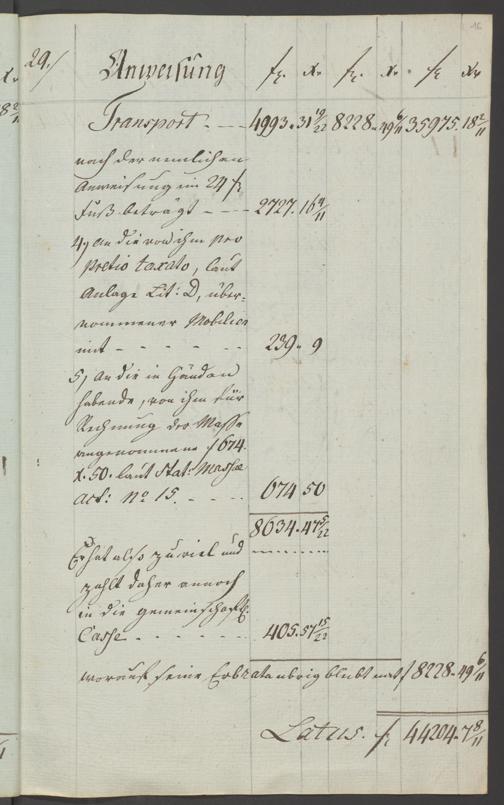 16
29./ Anweisung fr. Xr fr. Xr fr Xr
Transport - - 4993. 31 19/22 8228. 49 6/11 35975. 18 2/11
nach der nemlichen
Anweisung im 24 fr
Fuß beträgt - - 2727. 16 4/11
4, an die von ihm pro
pretio taxato, laut
Anlage Lit: D, über-
nommener Mobilien
mit - - - - - 239. 9
5, an die in Handen
habende, von ihm für
Rechnung der Masse
angenommene f 674.
X. 50. laut Stat: Massae
act: No 15. - - - 674 50
8634. 47 5/22
Er hat also zu viel und
zahlt daher annoch
in die gemeinschaftl.
Casse - - - - - 405. 57 15/22
worauf seine Erbrata übrig bleibt mit f 8228. 49 6/11
Latus. fr 44204. 7 8/11